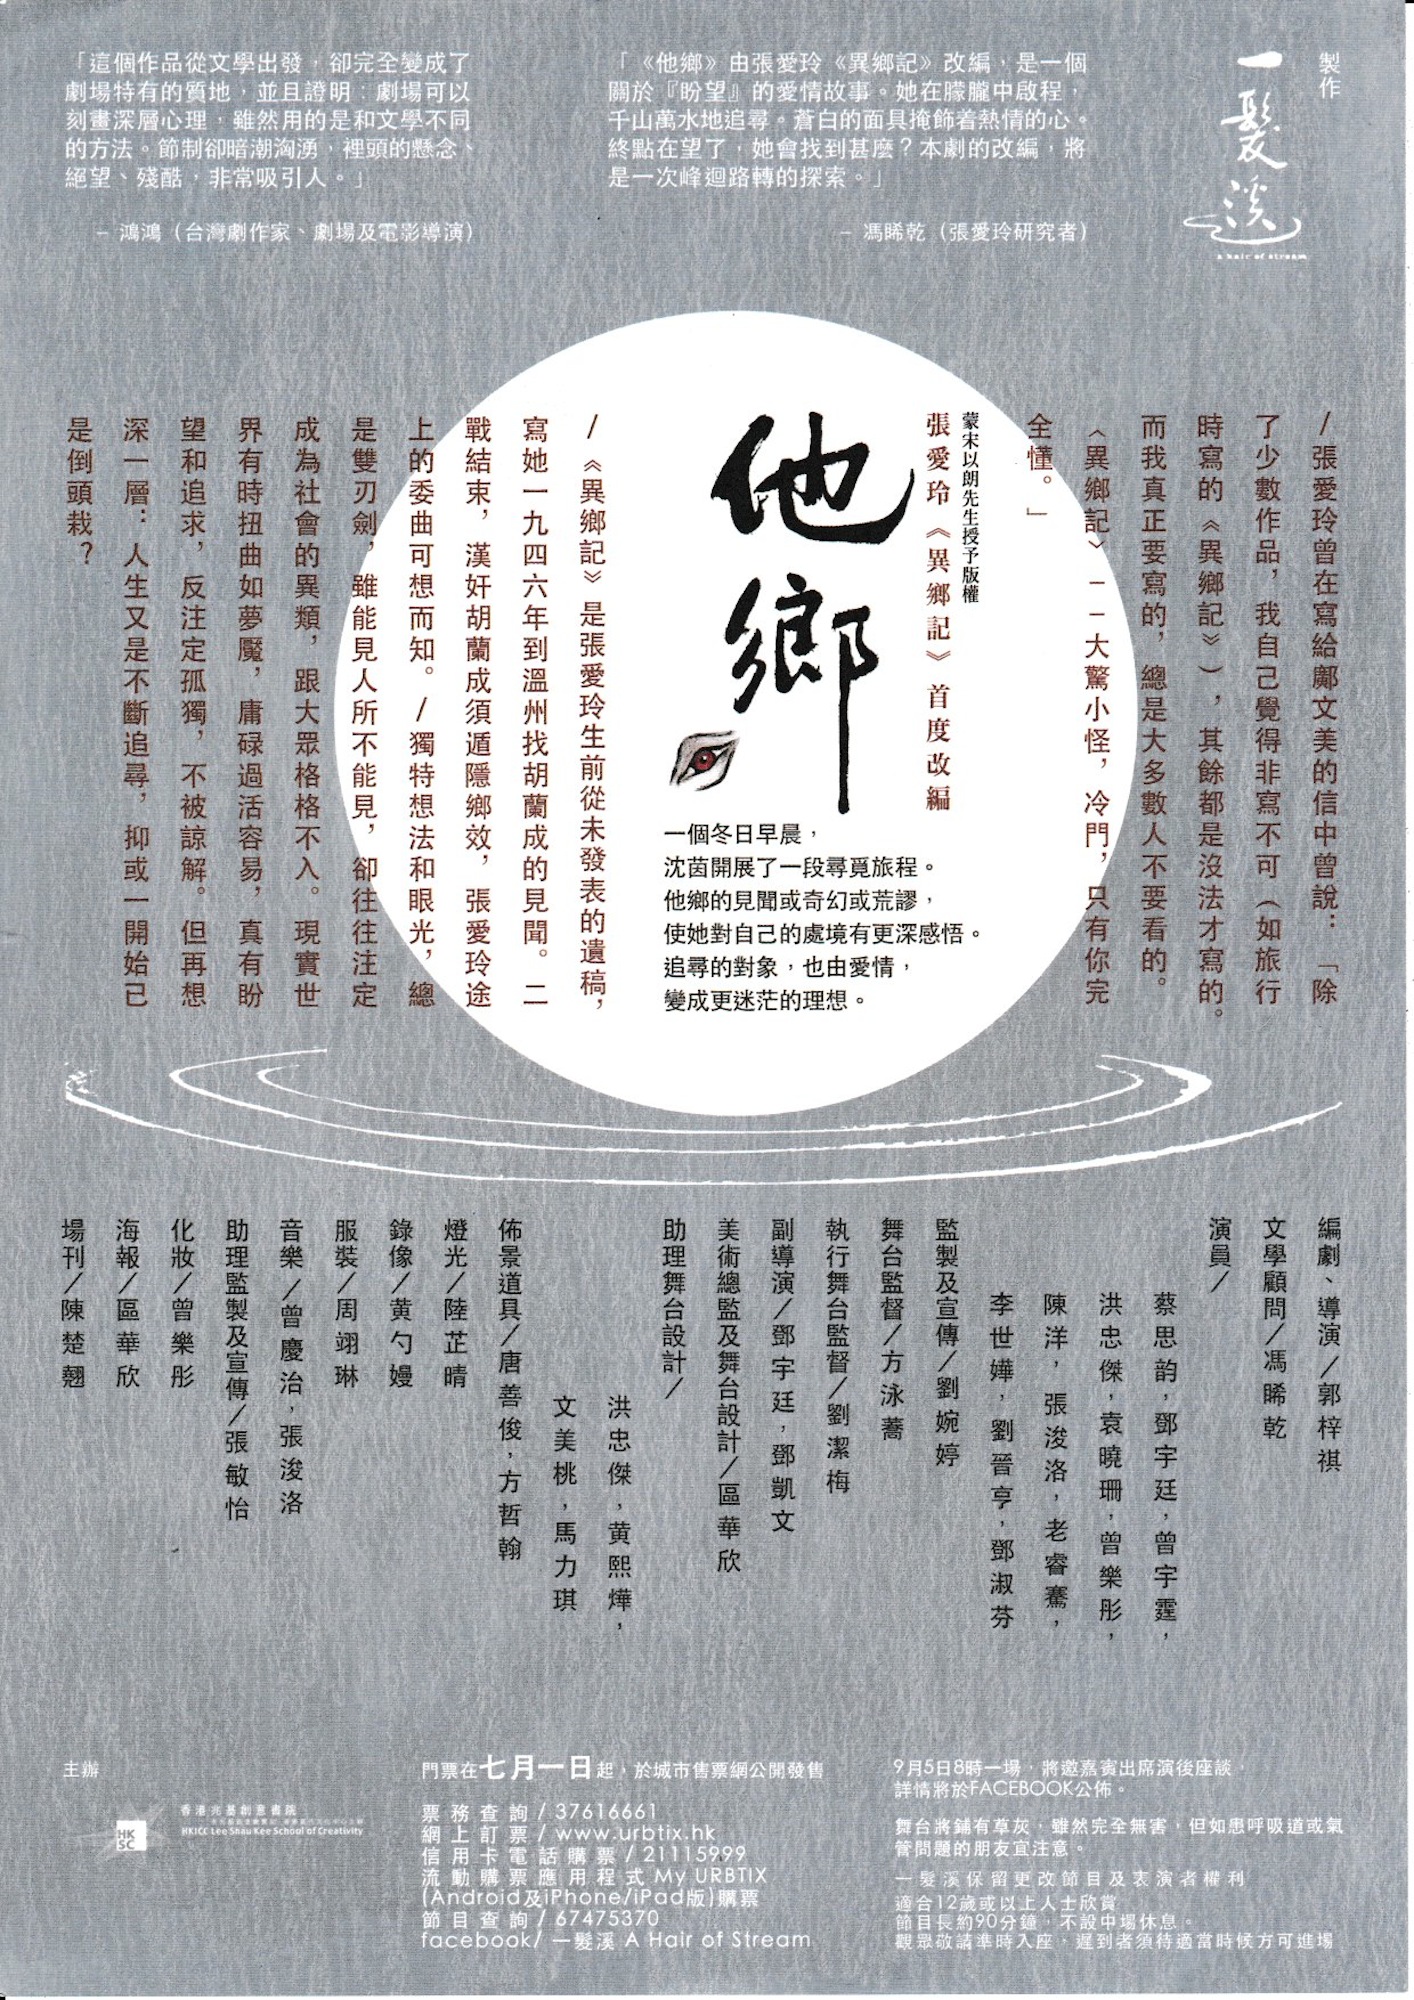 製作
一髮溪
a hair of stream
「《他鄉》由張愛玲《異鄉記》改編，是一個
關於『盼望』的愛情故事。她在朦朧中啟程，
千山萬水地追尋。蒼白的面具掩飾着熱情的心。
終點在望了，她會找到甚麼？本劇的改編，將
是一次峰迴路轉的探索。」
– 馮睎乾（張愛玲研究者）
「這個作品從文學出發，卻完全變成了
劇場特有的質地，並且證明：劇場可以
刻畫深層心理，雖然用的是和文學不同
的方法。節制卻暗潮洶湧，裡頭的懸念、
絕望、殘酷，非常吸引人。」
– 鴻鴻（台灣劇作家、劇場及電影導演）
/張愛玲曾在寫給鄺文美的信中曾說：「除
了少數作品，我自己覺得非寫不可（如旅行
時寫的《異鄉記》），其餘都是沒法才寫的。
而我真正要寫的，總是大多數人不要看的。
〈異鄉記〉––大驚小怪，冷門，只有你完
全懂。」
蒙宋以朗先生授予版權
張愛玲《異鄉記》首度改編
他鄉
一個冬日早晨，
沈茵開展了一段尋覓旅程。
他鄉的見聞或奇幻或荒謬，
使她對自己的處境有更深感悟。
追尋的對象，也由愛情，
變成更迷茫的理想。
/《異鄉記》是張愛玲生前從未發表的遺稿，
寫她一九四六年到溫州找胡蘭成的見聞。二
戰結束，漢奸胡蘭成須遁隱鄉效，張愛玲途
上的委曲可想而知。/獨特想法和眼光，總
是雙刃劍，雖能見人所不能見，卻往往注定
成為社會的異類，跟大眾格格不入。現實世
界有時扭曲如夢魘，庸碌過活容易，真有盼
望和追求，反注定孤獨，不被諒解。但再想
深一層：人生又是不斷追尋，抑或一開始已
是倒頭栽？
編劇、導演/郭梓祺
文學顧問/馮睎乾
演員/
蔡思韵，鄧宇廷，曾宇霆，
洪忠傑，袁曉珊，曾樂彤，
陳洋，張浚洛，老睿騫，
李世嬅，劉晉亨，鄧淑芬
監製及宣傳/劉婉婷
舞台監督/方泳蕎
執行舞台監督/劉潔梅
副導演/鄧宇廷，鄧凱文
美術總監及舞台設計/區華欣
助理舞台設計/
洪忠傑，黃熙燁，
文美桃，馬力琪
佈景道具/唐善俊，方哲翰
燈光/陸芷晴
錄像/黄勺嫚
服裝/周翊琳
音樂/曾慶治，張浚洛
助理監製及宣傳/張敏怡
化妝/曾樂彤
海報/區華欣
場刊/陳楚翹
主辦
HK
SC
香港兆基創意書院
HKICC Lee Shau Kee School of Creativity
門票在七月一日起，於城市售票網公開發售
票務查詢/37616661
網上訂票/www.urbtix.hk
信用卡電話購票/21115999
流動購票應用程式 My URBTIX
(Android及iPhone/iPad版)購票
節目查詢/67475370
facebook/ 一髮溪 A Hair of Stream
9月5日8時一場，將邀嘉賓出席演後座談，
詳情將於FACEBOOK公佈。
舞台將鋪有草灰，雖然完全無害，但如患呼吸道或氣
管問題的朋友宜注意。
一髮溪保留更改節目及表演者權利
適合12歲或以上人士欣賞
節目長約90分鐘，不設中場休息。
觀眾敬請準時入座，遲到者須待適當時候方可進場